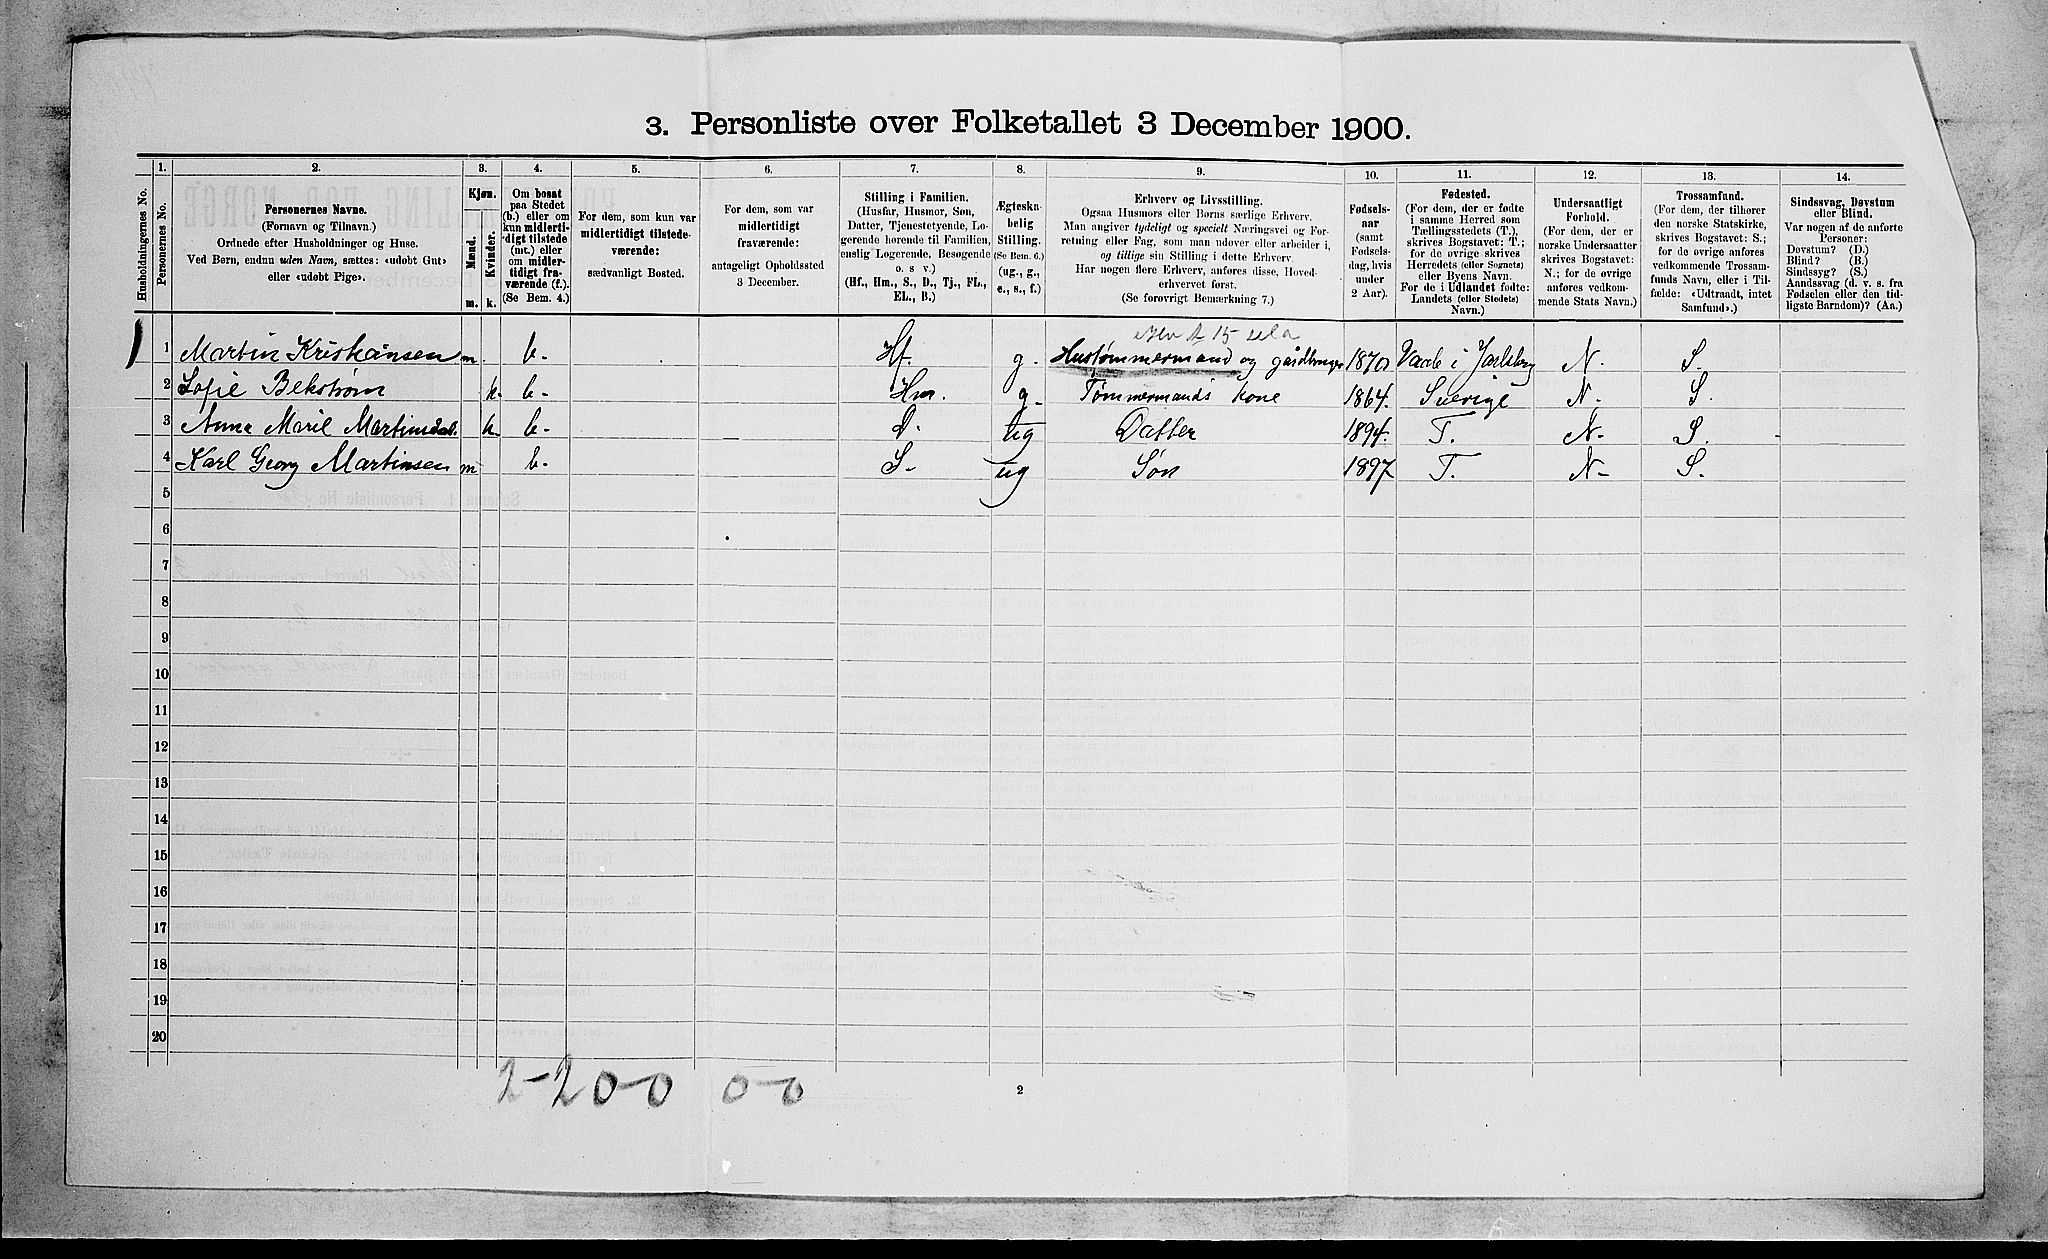 3. Personliste over Folketallet 3 December 1900.
1. 2. 3. 4. 5. 6. 7. 8. 9. 10. 11. 12. 13. 14.
Husholdningernes No.
Personernes No.
Personernes Navne.
(Fornavn og Tilnavn.)
Ordnede efter Husholdninger og Huse.
Ved Børn, endnu uden Navn, sættes: «udøbt Gut»
eller «udøbt Pige».
Kjøn.
Mænd.
Kvinder.
m. k.
Om bosat
paa Stedet
(b.) eller om
kun midlerti-
digt tilstede
(mt.) eller
om midler-
tidigt fra-
værende (f.).
(Se Bem. 4.)
For dem, som kun var
midlertidigt tilstede-
værende:
sædvanligt Bosted.
For dem, som var
midlertidigt
fraværende:
antageligt Opholdssted
3 December.
Stilling i Familien.
(Husfar, Husmor, Søn,
Datter, Tjenestetyende, Lo-
gerende hørende til Familien,
enslig Logerende, Besøgende
o. s v.)
(Hf., Hm., S., D., Tj., FL.,
EL., B.)
Ægteska-
belig
Stilling.
(Se Bem. 6.)
(ug., g.,
e., s., f.)
Erhverv og Livsstilling.
Ogsaa Husmors eller Børns særlige Erhverv.
Man angiver tydeligt og specielt Næringsvei og For-
retning eller Fag, som man udøver eller arbeider i,
og tillige sin Stilling i dette Erhverv.
Har nogen flere Erhverv, anføres disse, Hoved-
erhvervet først.
(Se forøvrigt Bemærkning 7.)
Fødsels-
aar
(samt
Fødsels-
dag, hvis
under
2 Aar).
Fødested.
(For dem, der er fødte
i samme Herred som
Tællingsstedets (T.),
skrives Bogstavet: T.;
for de øvrige skrives
Herredets (eller Sognets)
eller Byens Navn.
For de i Udlandet fødte:
Landets (eller Stedets)
Navn.)
Undersaatligt
Forhold.
(For dem, der er
norske Undersaatter
skrives Bogstavet:
N.; for de øvrige
anføres vedkom-
mende Stats Navn.)
Trossamfund.
(For dem, der tilhører
den norske Statskirke,
skrives Bogstavet: S.;
for de øvrige anføres
vedkommende Trossam-
funds Navn, eller i Til-
fælde: «Udtraadt, intet
Samfund».)
Sindssvag, Døvstum
eller Blind.
Var nogen af de anførte
Personer:
Døvstum? (D.)
Blind? (B.)
Sindssyg? (S.)
Aandssvag (d. v. s. fra
Fødselen eller den tid-
ligste Barndom)? (Aa.)
1 Martin Kristiansen m. b. Hf. g. Hustømmermand og gårdbruger 1870 Vaale i Jarlsberg N. S.
2 Sofie Bekstrøm k. b. Hm. g. Tømmermands kone 1864. Sverige N. S.
3 Anna Maril Martinsdat. k. b. D. ug Datter 1894. T. N. S.
4 Karl Georg Martinsen m b. S. ug Søn 1897 T. N. S.
5
6
7
8
9
10
11
12
13
14
15
16
17
18
19
20
2-200 0-0
2